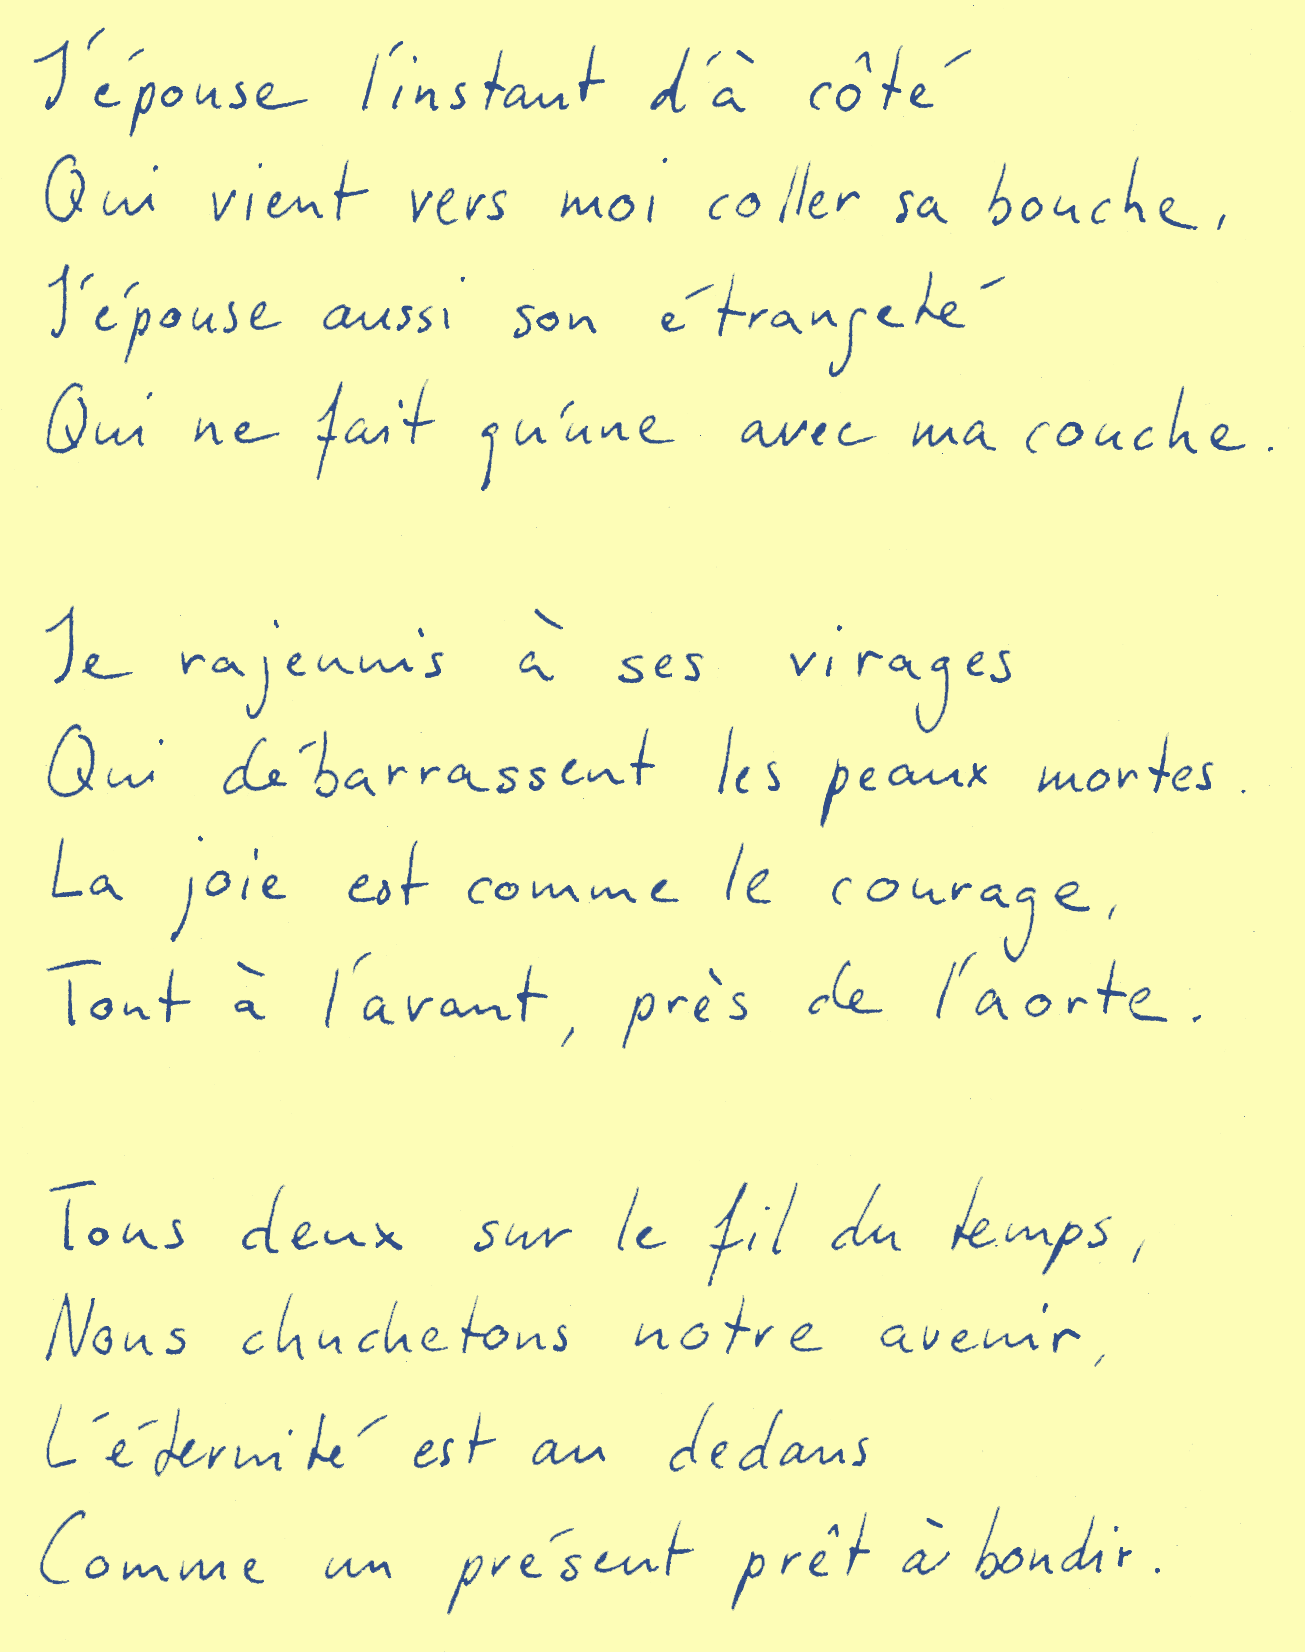 J'épouse l'instant d'à côté
Qui vient vers moi coller sa bouche,
J'épouse aussi son étrangeté
Qui ne fait qu'une avec ma couche.

Je rajeunis à ses virages
Qui débarrassent les peaux mortes.
La joie est comme le courage,
Tout à l'avant, près de l'aorte.

Tous deux sur le fil du temps,
Nous chuchetons notre avenir,
L'éternité est au dedans
Comme un présent prêt à bondir.